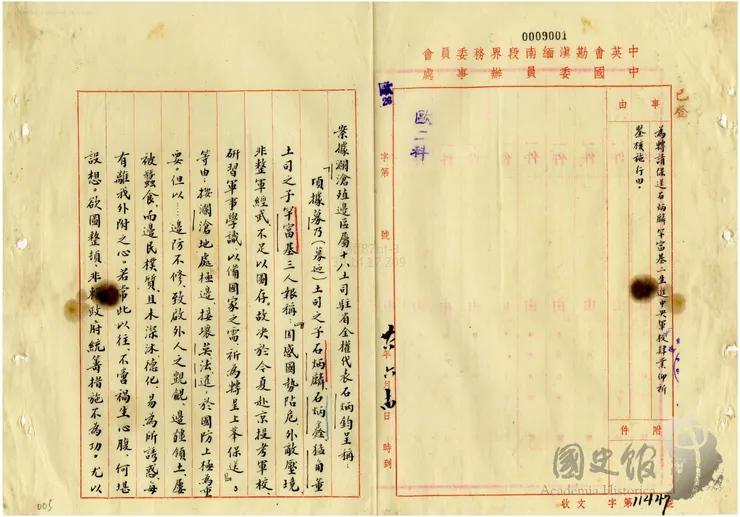 0009001
中英會勘滇緬南段界務委員會
中國委員辦事處
已登
事由
為轉請保送石炳麟罕富基二生進中央軍校肄業仰祈
鑒核施行由。
附件
歐二科
歐26
字第 號
年六月 日 時到
收文 字第11447號
案據瀾滄殖邊區屬十八土司駐省全權代表石炳鈞呈稱：
「頃據募乃（募廼）土司之子石炳麟、石炳鑫、猛角董
土司之子罕富基三人報稱：『因感國勢阽危，外敵壓境，
非整軍經武不足以圖存。故決於今夏赴京投考軍校，
研習軍事學識，以備國家之需，祈為轉呈上峯保送』。
等由；按瀾滄地處極邊，接壤英法，進於國防上極為重
要。但以……邊防不修，致啟外人之覬覦，邊疆領土，屢
被蠶食，而邊民樸質，且未深沐德化，易為所誘惑，每
有離我外附之心。若常此以往，不啻禍生心腹，何堪
設想。欲圖整頓，非賴政府統籌措施不為功。尤以
005
國史館
Academia Historica